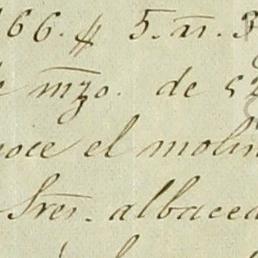 166. $ 5. rr. 3
mzo. de 52
noce el molin
Sres. albacea